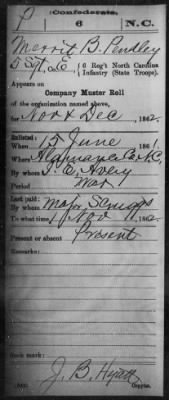 P
Confederate.
6 N.C.
Merrit B. Pendley
Sgt., E, 6 Reg't North Carolina
Infantry (State Troops).
Appears on
Company Muster Roll
of the organization named above,
for Nov & Dec, 1862.
Enlisted:
When 15 June 1861
Where Alamance Co N.C.
By whom I. E. Avery
Period War
Last paid:
By whom Major Scruggs
To what time 1 Nov 1862.
Present or absent Present
Remarks:
Book mark:
J. B. Hyatt
Copyist.